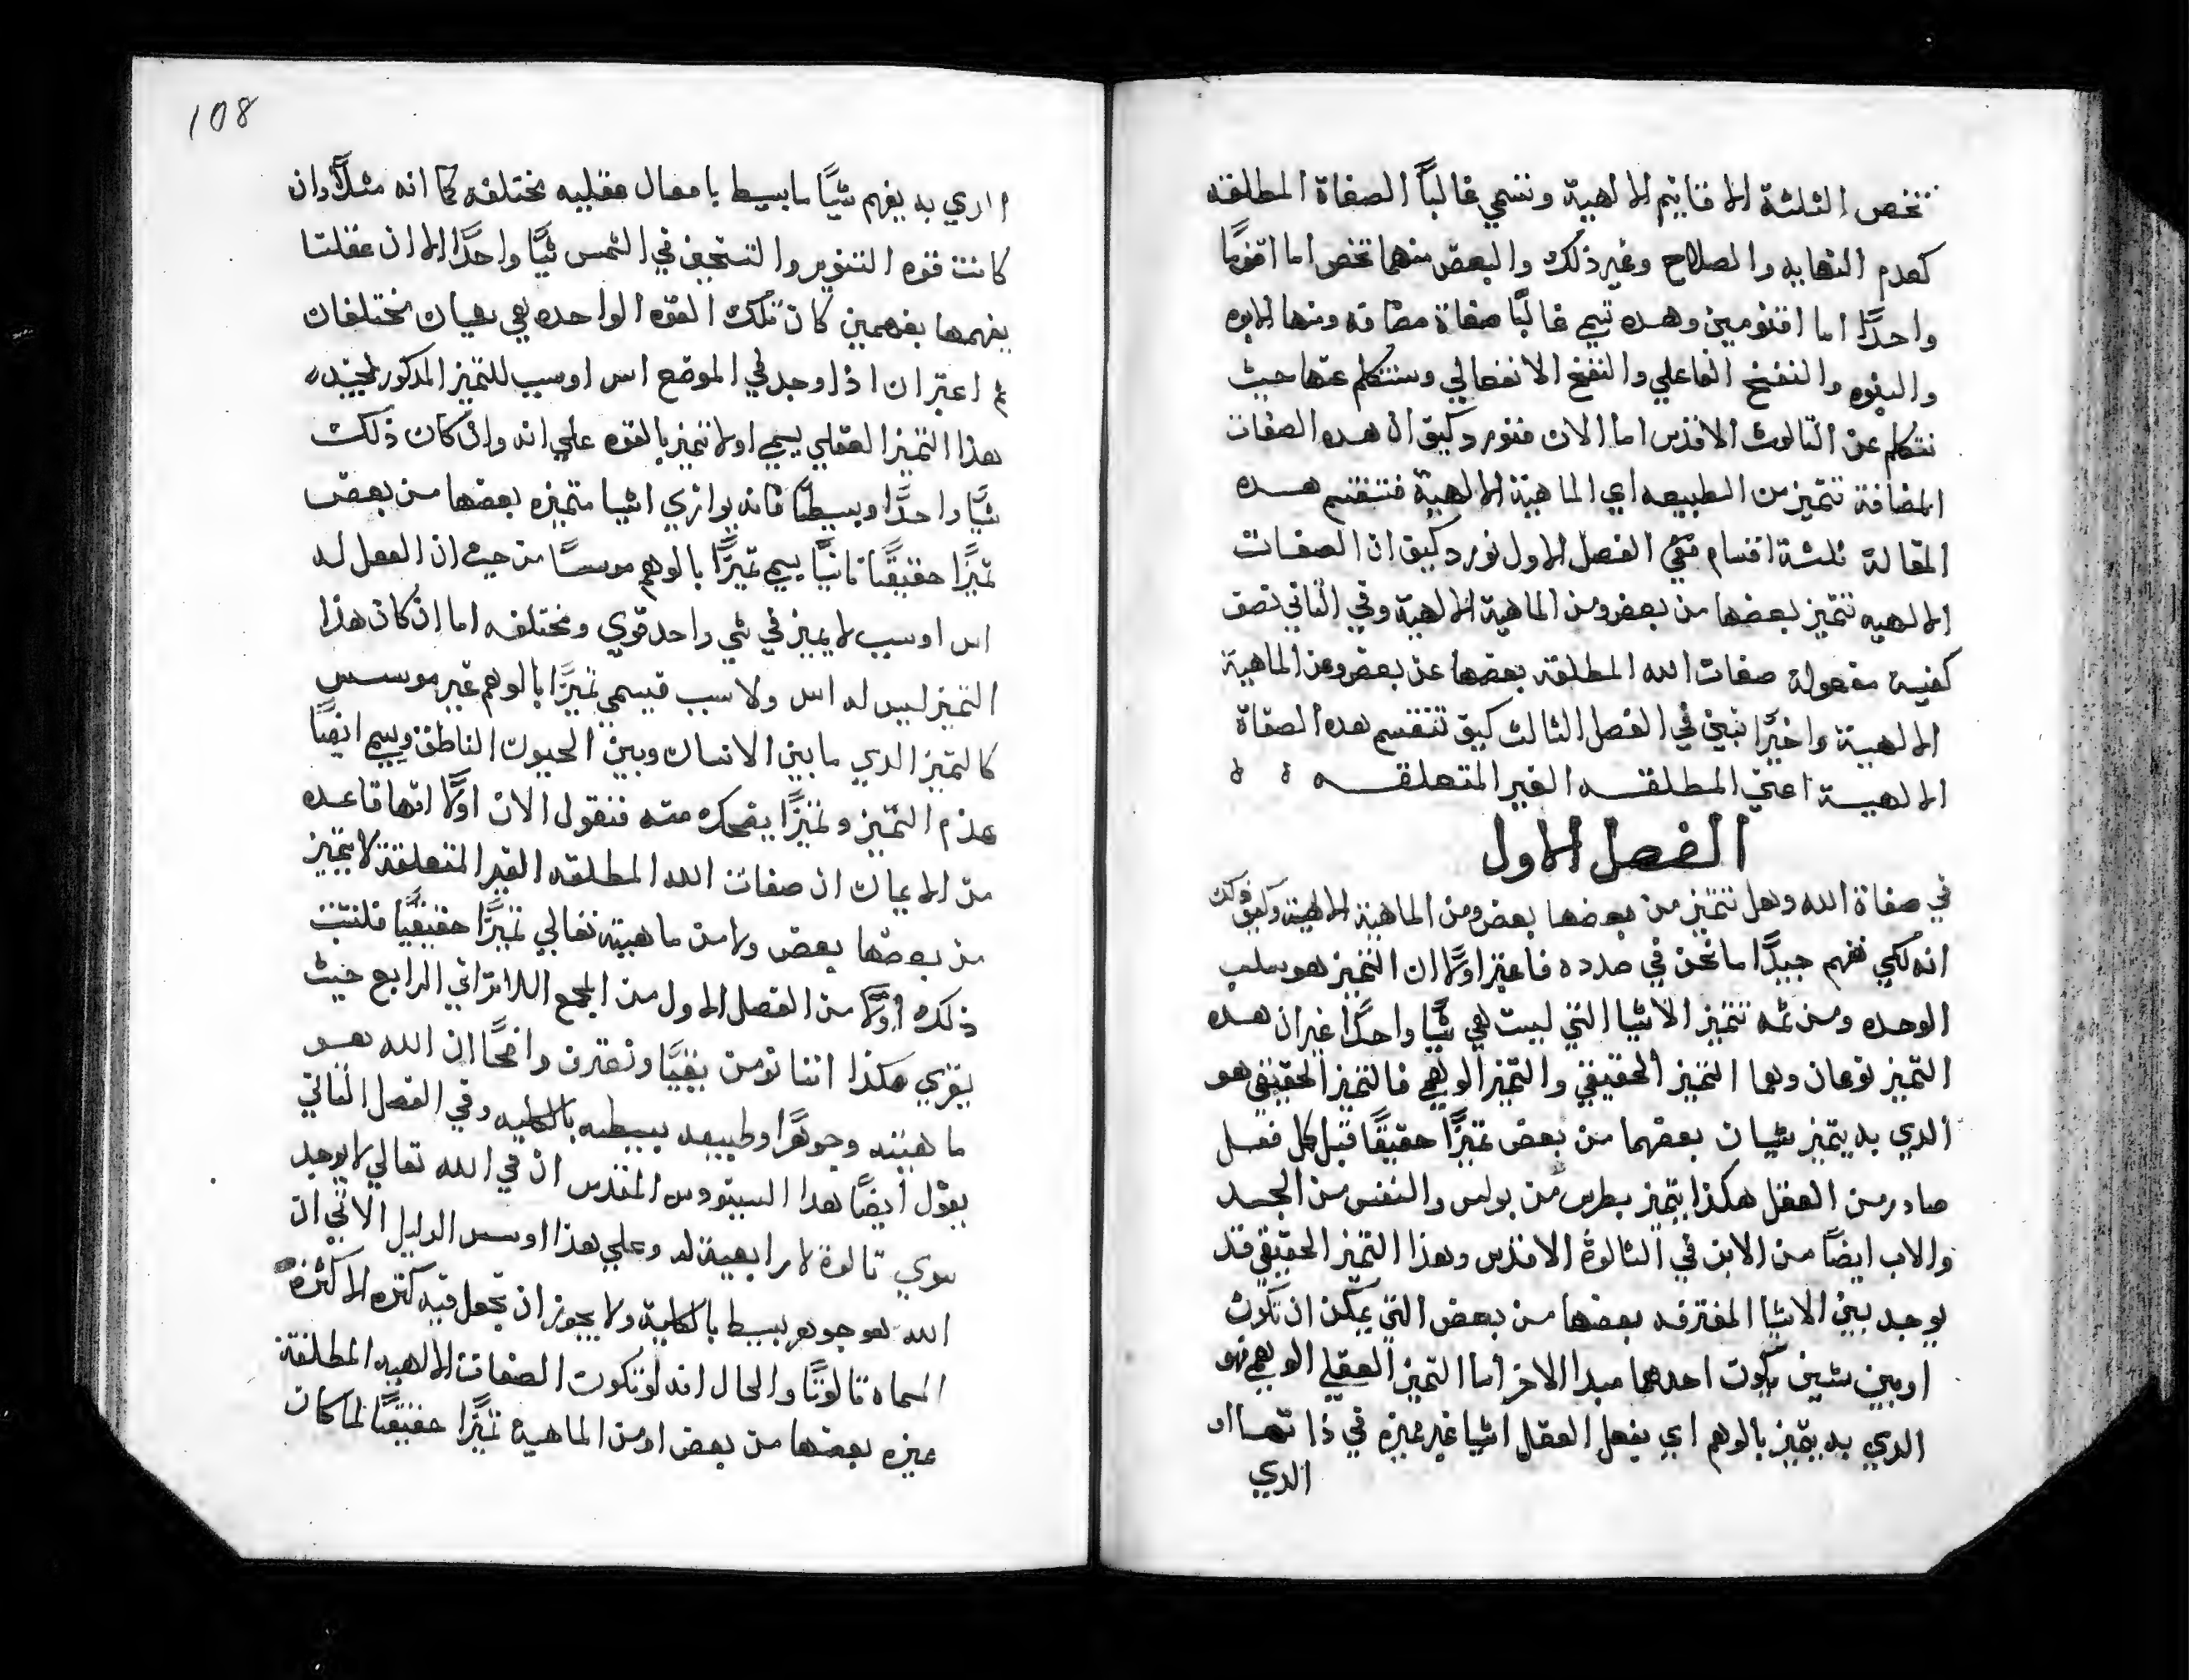 تخص الثلثة الاقانيم الالهية وتسمي غالباً الصفاة المطلقه
كعدم النهايه والصلاح وغير ذلك والبعض منهما تخص اما اقنومًا
واحدًا اما اقنومين وهده تسمي غالبًا صفاة مضافه ومنها الابوه
والبنوه والنفخ الفاعلي والنفخ الانفعالي وسنتكلم عنها حيث
نتكلم عن التالوت الاقدس اما الان فنورد كيف ان هده الصفات
المضافة تتميز من الطبيعه اي الماهية الالهية فتنقسم هده
المقالة تلثة اقسام ففي الفصل الاول نورد كيف ان الصفات
الالهيه تتميز بعضها من بعض ومن الماهية الالهية وفي التاني نصف
كفية مفعولة صفات الله المطلقه بعضها عن بعض وعن الماهية
الالهية واخيرًا نبين في الفصل الثالث كيف تنقسم هده الصفاة
الالهية اعني المطلقه الغير المتعلقه
الفصل الاول
في صفاة الله وهل تتميز من بعضها بعض ومن الماهية الالهية وكيف ذلك
انه لكي نفهم جيدًا ما نحن في صدده فاعتبر اولاً ان التميز هو سلب
الوحده ومن تمه تتميز الاشيا التي ليست هي شيًا واحدًا غير ان هده
التميز نوعان وهما التميز الحقيقي والتميز الوهمي فالتميز الحقيقي هو
الدي به يتميز شيان بعضهما من بعض تميزًا حقيقًا قبل كل فعل
صادر من العقل هكذا يتميز بطرس من بولس والنفس من الجسد
والاب ايضاً من الابن في التالوة الاقدس وهذا التميز الحقيقي قد
يوجد بين الاشيا المفترقه بعضها من بعض التي يمكن ان تكون
او بين شين يكون احدهما مبدا الاخر اما التميز العقلي الوهمي فهو
الدي به يتميز بالوهم اي بفعل العقل اشيا غير مميزه في ذاتها او
الدي
108
الدي به يفهم شيًا ما بسيط بافعال عقليه مختلفه كما انه مثلاً وان
كانت قوه التنوير والتسخين في الشمس شيًا واحدًا الا ان عقلنا
يفهمها بفهمين كان تلك القوه الواحده هي شيان مختلفان
تم اعتبر ان اذا وجد في الموضع اس او سبب للتميز المذكور فحينيد
هذا التميز العقلي يسمي اولا تميز بالقوه علي انه وان كان ذلك
شيًا واحدًا وبسيطًا فانه يوازي اشيا متميزه بعضها من بعض
تميزًا حقيقًا تانيًا يسمي تميزًا بالوهم موسسًا من حيث ان العقل له
اس او سبب لا يميز في شي واحد قوي ومختلفه اما ان كان هذا
التميز ليس له اس ولا سبب فيسمي تميزًا بالوهم غير موسس
كالتميز الدي ما بين الانسان وبين الحيون الناطق ويسمي ايضًا
عدم التميز وتميزًا يضحك منه فنقول الان اولاً انها قاعده
من الايمان ان صفات الله المطلقه الغير المتعلقة لا يتميز
من بعضها بعض ولا من ماهيته تعالي تميزًا حقيقيًا فلنتبت
ذلك اولاً من الفصل الاول من المجمع اللاتراني الرابع حيث
يقري هكذا اننا نومن يقيًا ونعترف واضحًا ان الله هو
ماهيته وجوهرًا وطبيعه بسيطه بالكليه وفي الفصل التاني
يقول ايضًا هدا السينودس المقدس ان في الله تعالي لا يوجد
سوي تالوة لا رابعية له وعلي هذا اوسس الدليل الاتي ان
الله هو جوهر بسيط بالكلية ولا يجوز ان نجعل فيه كتره الا كثرة
المسماه تالوتًا والحال انه لو تكون الصفات الالهيه المطلقة
مميزه بعضها من بعض او من الماهية تميزًا حقيقيًا لما كان